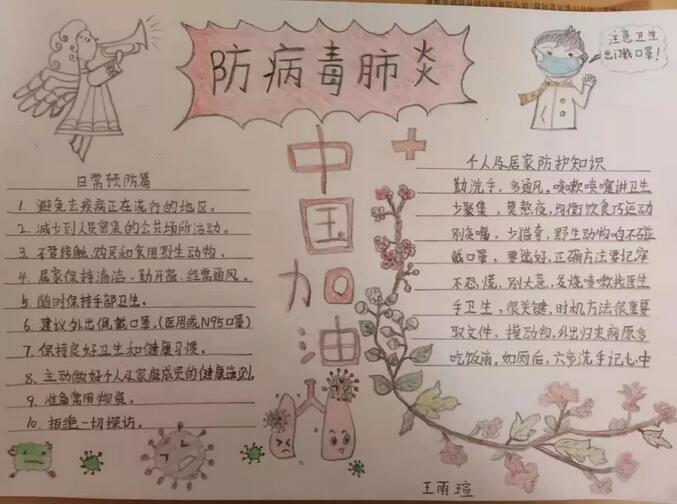 防病毒肺炎
注意卫生
出门戴口罩!
中国加油
日常预防篇
1. 避免去疾病正在流行的地区。
2. 减少到人员密集的公共场所活动。
3. 不要接触、购买和食用野生动物、
4. 居家保持清洁、勤开窗、经常通风。
5. 随时保持手部卫生。
6. 建议外出佩戴口罩,(医用或N95口罩)
7. 保持良好卫生和健康习惯。
8. 主动做好个人及家庭成员的健康监测。
9. 准备常用物资。
10. 拒绝一切探访。
个人及居家防护知识
勤洗手,多通风,咳嗽喷嚏讲卫生
少聚集,莫熬夜,均衡饮食巧运动
别贪嘴,少猎奇,野生动物咱不碰
戴口罩,要选好,正确方法要记牢
不恐慌,别大意,发烧咳嗽找医生
手卫生,很关键,时机方法很重要
取文件,摸动物,外出归来病原多
吃饭前,如厕后,六步洗手记心中
王雨瑄